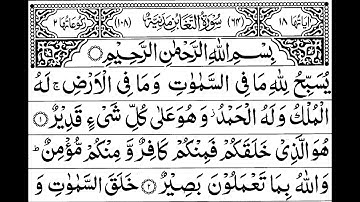 اٰیَاتُهَا ۱۸ (۶۴) سُوْرَةُ التَّغَابُنِ مَدَنِیَّةٌ (۱۰۸) رُكُوْعَاتُهَا ۲
بِسْمِ اللّٰهِ الرَّحْمٰنِ الرَّحِیْمِ
یُسَبِّحُ لِلّٰهِ مَا فِی السَّمٰوٰتِ وَمَا فِی الْاَرْضِ ۚ لَهُ
الْمُلْكُ وَلَهُ الْحَمْدُ ۫ وَهُوَ عَلٰی كُلِّ شَیْءٍ قَدِیْرٌ ۝۱
هُوَ الَّذِیْ خَلَقَكُمْ فَمِنْكُمْ كَافِرٌ وَّ مِنْكُمْ مُّؤْمِنٌ ؕ
وَاللّٰهُ بِمَا تَعْمَلُوْنَ بَصِیْرٌ ۝۲ خَلَقَ السَّمٰوٰتِ وَ